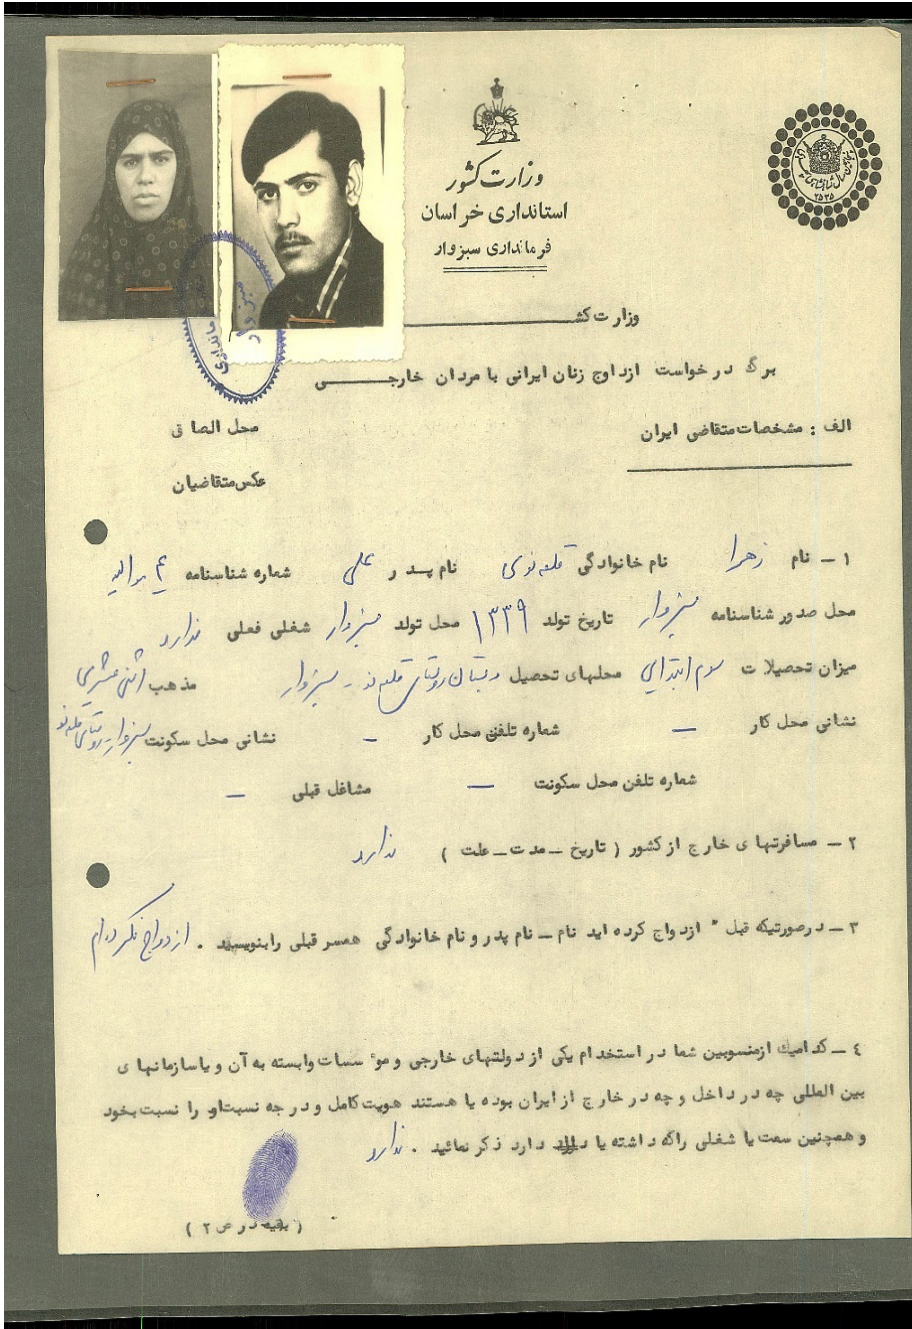 وزارت کشور
استانداری خراسان
فرمانداری سبزوار
۲۵۳۵
سبزوار
وزارت کشـــــــ
برگ درخواست ازدواج زنان ایرانی با مردان خارجـــــی
الف : مشخصات متقاضی ایران
محل الصاق
عکس متقاضیان
۱ ـ نام زهرا نام خانوادگی قلعه نوی نام پدر علی شماره شناسنامه ۴
محل صدور شناسنامه سبزوار تاریخ تولد ۱۳۳۹ محل تولد سبزوار شغلی فعلی ندارد
میزان تحصیلات سوم ابتدایی محلهای تحصیل دبستان روستای قلعه نو ـ سبزوار مذهب اثنی عشری
نشانی محل کار ـ شماره تلفن محل کار ـ نشانی محل سکونت سبزوار ـ روستای قلعه نو
شماره تلفن محل سکونت ـ مشاغل قبلی ـ
۲ ـ مسافرتهای خارج از کشور ( تاریخ ـ مدت ـ علت ) ندارد
۳ ـ درصورتیکه قبلا" ازدواج کرده اید نام ـ نام پدر و نام خانوادگی همسر قبلی رابنویسید . ازدواج نکرده ام
٤ ـ کدامیك ازمنسوبین شما در استخدام یکی از دولتهای خارجی و موٴسسات وابسته به آن و یاسازمانهای
بین المللی چه در داخل و چه در خارج از ایران بوده یا هستند هویت کامل و درجه نسبت او را نسبت بخود
و همچنین سمت یا شغلی راکه داشته یا دارد ذکر نمائید . ندارد
( بقیه در ص ۲ )